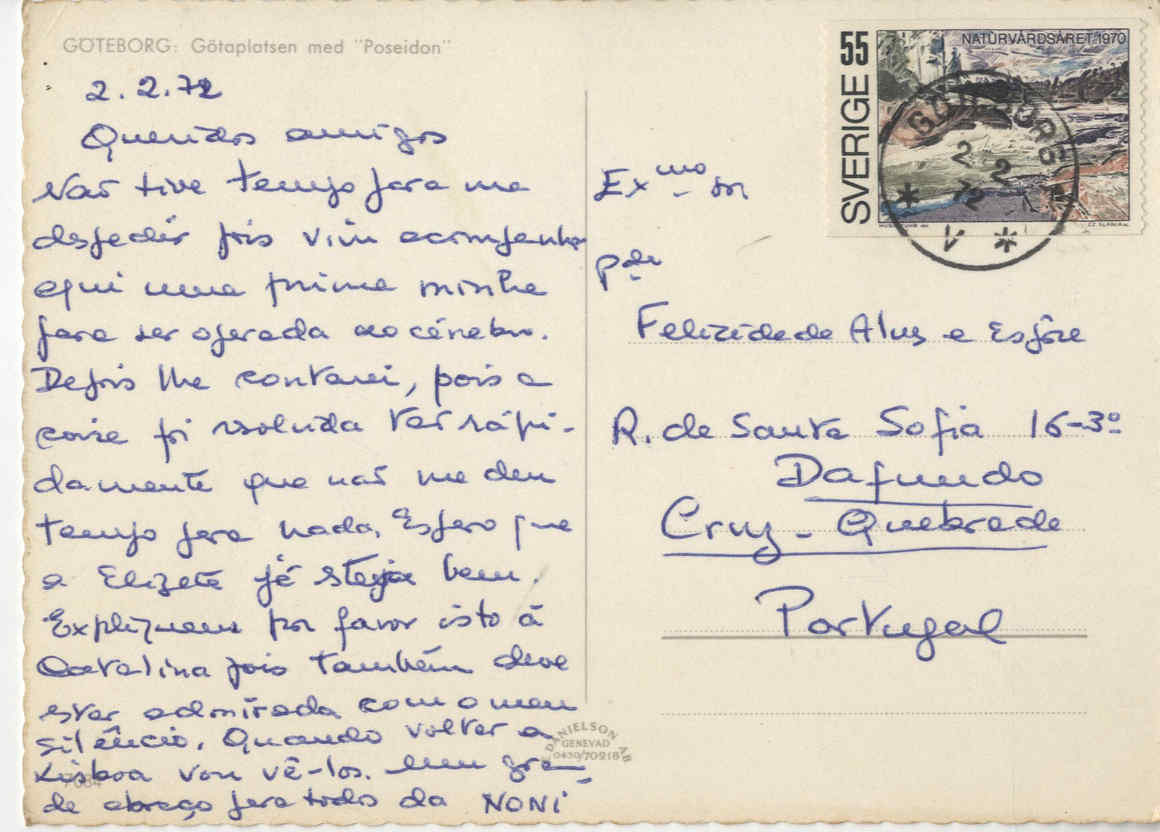 GÖTEBORG: Götaplatsen med "Poseidon"
2.2.72
Queridos amigos
Não tive tempo para me
despedir pois vim acompanhar
aqui uma prima minha
para ser operada ao cérebro.
Depois lhe contarei, pois a
coisa foi resolvida tão rápi-
damente que não me deu
tempo para nada. Espero que
a Elizete já esteja bem.
Expliquem por favor isto à
Catalina pois também deve
estar admirada com o meu
silêncio. Quando voltar a
Lisboa vou vê-los. Um gran-
de abraço para todos da NONI
7084
DANIELSON AB
GENEVAD
0430/70218
SVERIGE 55
NATURVÅRDSÅRET 1970
GÖTEBORG
2 2
72
* V *
Ex.mo Sr
Felicidade Alves e Espôse
R. de Santa Sofia 16-3º
Dafundo
Cruz-Quebrada
Portugal